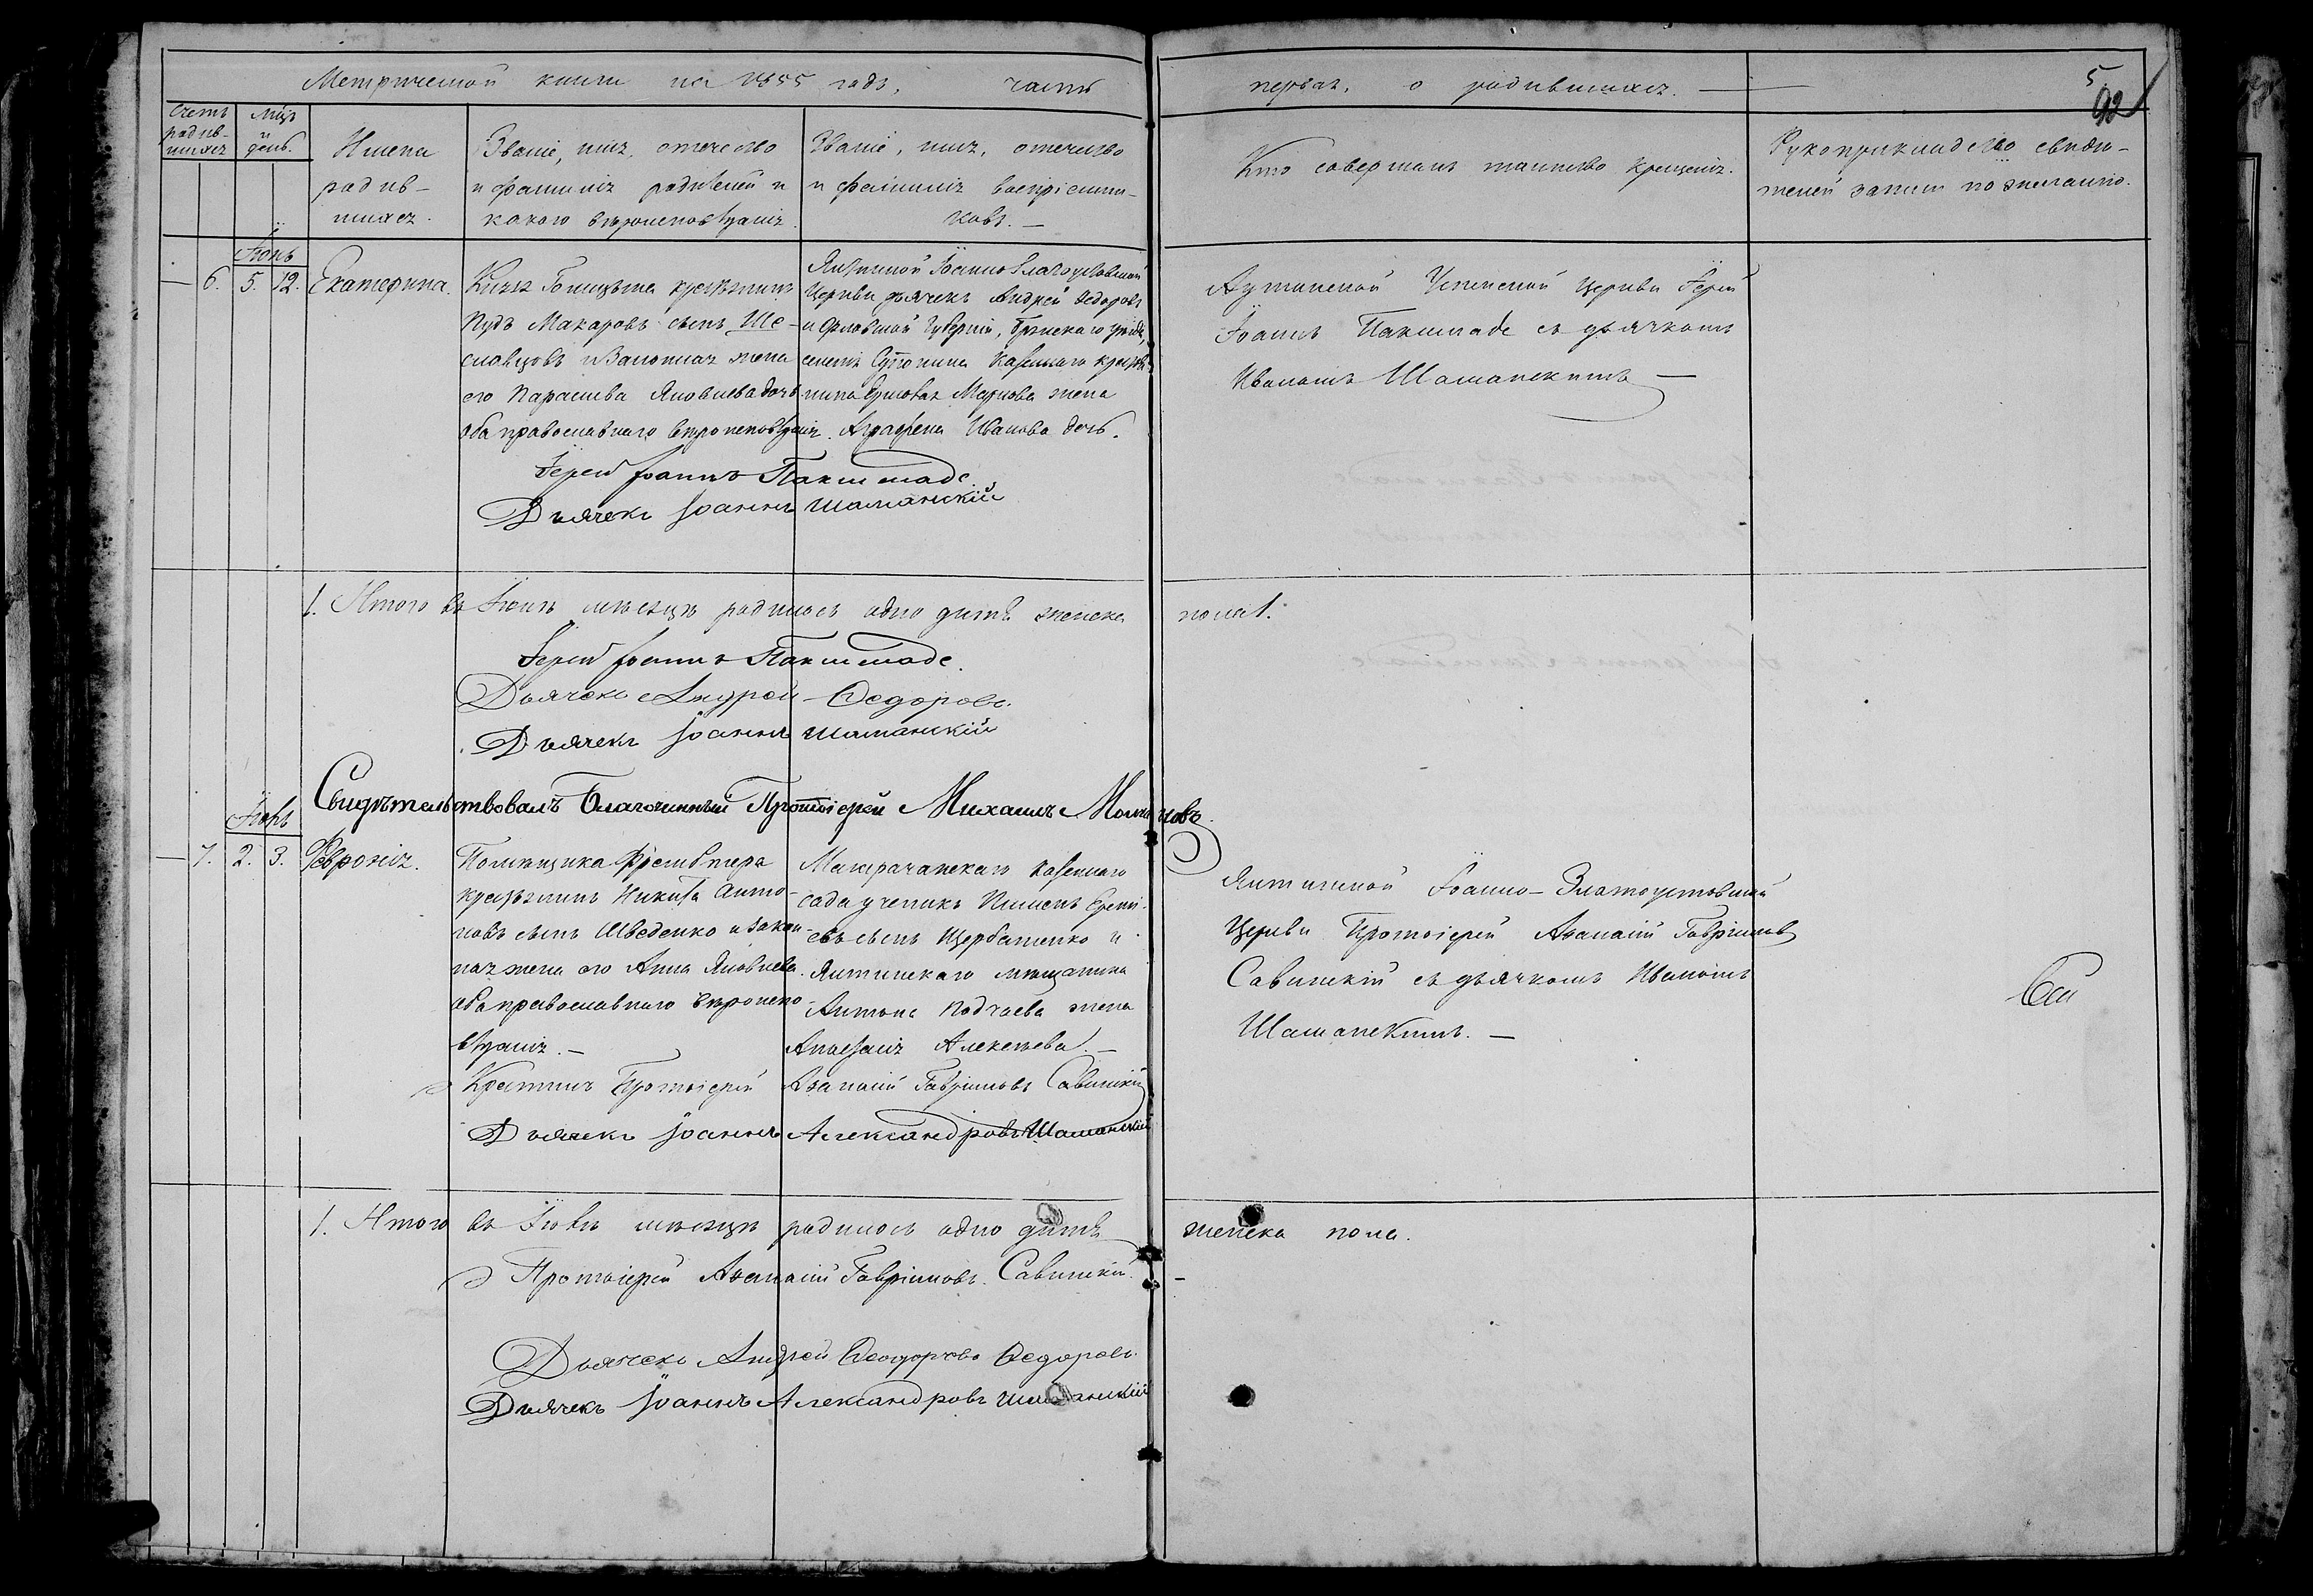 Метрической книги на 1855 годъ, часть первая, о родившихся.
5
92
Счетъ родив-шихся
Мцъ и день.
Имена
родив-
шихся.
Званіе, имя, отечество
и фамилія родителей и
какого вѣроисповѣданія.
Званіе, имя, отечество
и фамилія воспріемни-
ковъ. —
Кто совершалъ таинство крещенія.
Рукоприкладство свидѣ-
телей записи по желанію.
Іюнь
6. 5. 12. Екатерина.
Князя Голицына крестьянинъ
Пудъ Макаровъ сынъ Ше-
славцовъ и Законная жена
его Параскева Яковлева дочь
оба православнаго вѣроисповѣданія.
Ялтинской Іоанно Златоустовской
Церкви дьячекъ Андрей Ѳедоровъ
и Орловской Губерніи, Брянскаго уѣзда,
казеннаго крестья-
нина Маркова жена
Аграфена Иванова дочь.
Аутинской Успенской Церкви Іерей
Іоаннъ Пакшпаде съ дьячкомъ
Иваномъ Шаманскимъ —
Іерей Іоаннъ Пакшпаде.
Дьячекъ Іоаннъ Шаманскій
1. Итого въ Іюнѣ мѣсяцѣ родилось одно дитѣ женска пола 1.
Іерей Іоаннъ Пакшпаде.
Дьячекъ Андрей Ѳедоровъ.
Дьячекъ Іоаннъ Шаманскій
Свидѣтельствовалъ Благочинный Протоіерей Михаилъ
7. 2. 3. Февронія.
Помѣщика
крестьянинъ Никита Анто-
новъ сынъ Шведенко и закон-
ная жена его Анна Яковлева.
оба православнаго вѣроиспо-
вѣданія. —
Магарачанскаго казеннаго
сада ученикъ Пименъ
евъ сынъ Щербатенко и
Ялтинскаго мѣщанина
Антона Подчаева жена
Анастасія Алексѣева. —
Ялтинской Іоанно-Златоустовской
Церкви Протоіерей Аѳанасій Гавріиловъ
Савинскій съ дьячкомъ Иваномъ
Шаманскимъ. —
Крестилъ Протоіерей Аѳанасій Гавріиловъ Савинскій
Дьячекъ Іоаннъ Александровъ Шаманскій
1. Итого въ Іюлѣ мѣсяцѣ родилось одно дитѣ женска пола.
Протоіерей Аѳанасій Гавріиловъ Савинскій.
Дьячекъ Андрей Ѳеодоровъ Ѳедоровъ.
Дьячекъ Іоаннъ Александровъ Шаманскій